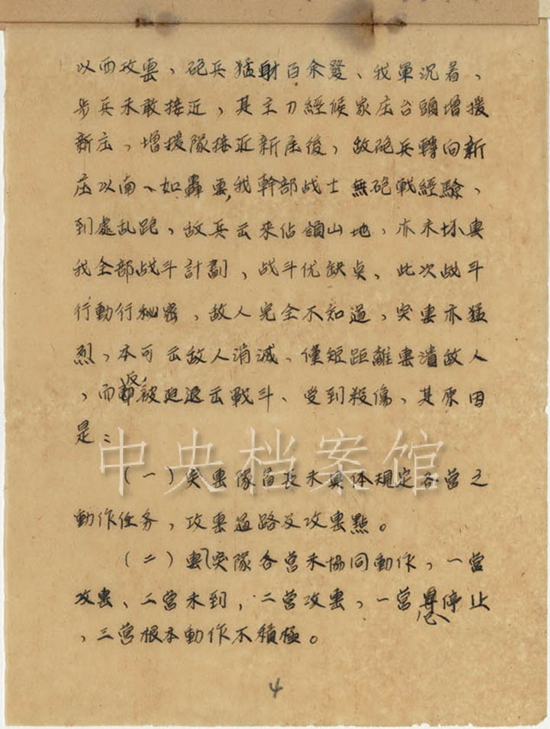 以西攻击、砲兵猛射百余发、我军沉着、
步兵未敢接近，其主力經候家庄台頭增援
新庄，增援隊接近新庄後，敌砲兵轉向新
庄以南、如轟击，我幹部战士無砲戰經驗，
到處乱跑，敌兵云来佔領山地，亦未
我全部战斗計劃，战斗优缺点，此次战斗
行動行秘密，敌人完全不知道，突击亦猛
烈，本可云敌人消滅、僅短距離击潰敌人
，而反被迫退云戰斗、受到殺傷，其原因
是：
中央档案馆
（一）突击隊首長未具体規定各营之
動作任务，攻击道路及攻击點。
（二）突隊各营未協同動作，一营
攻击、二营未到，二营攻击，一营停止
，三营根本動作不積極。
4